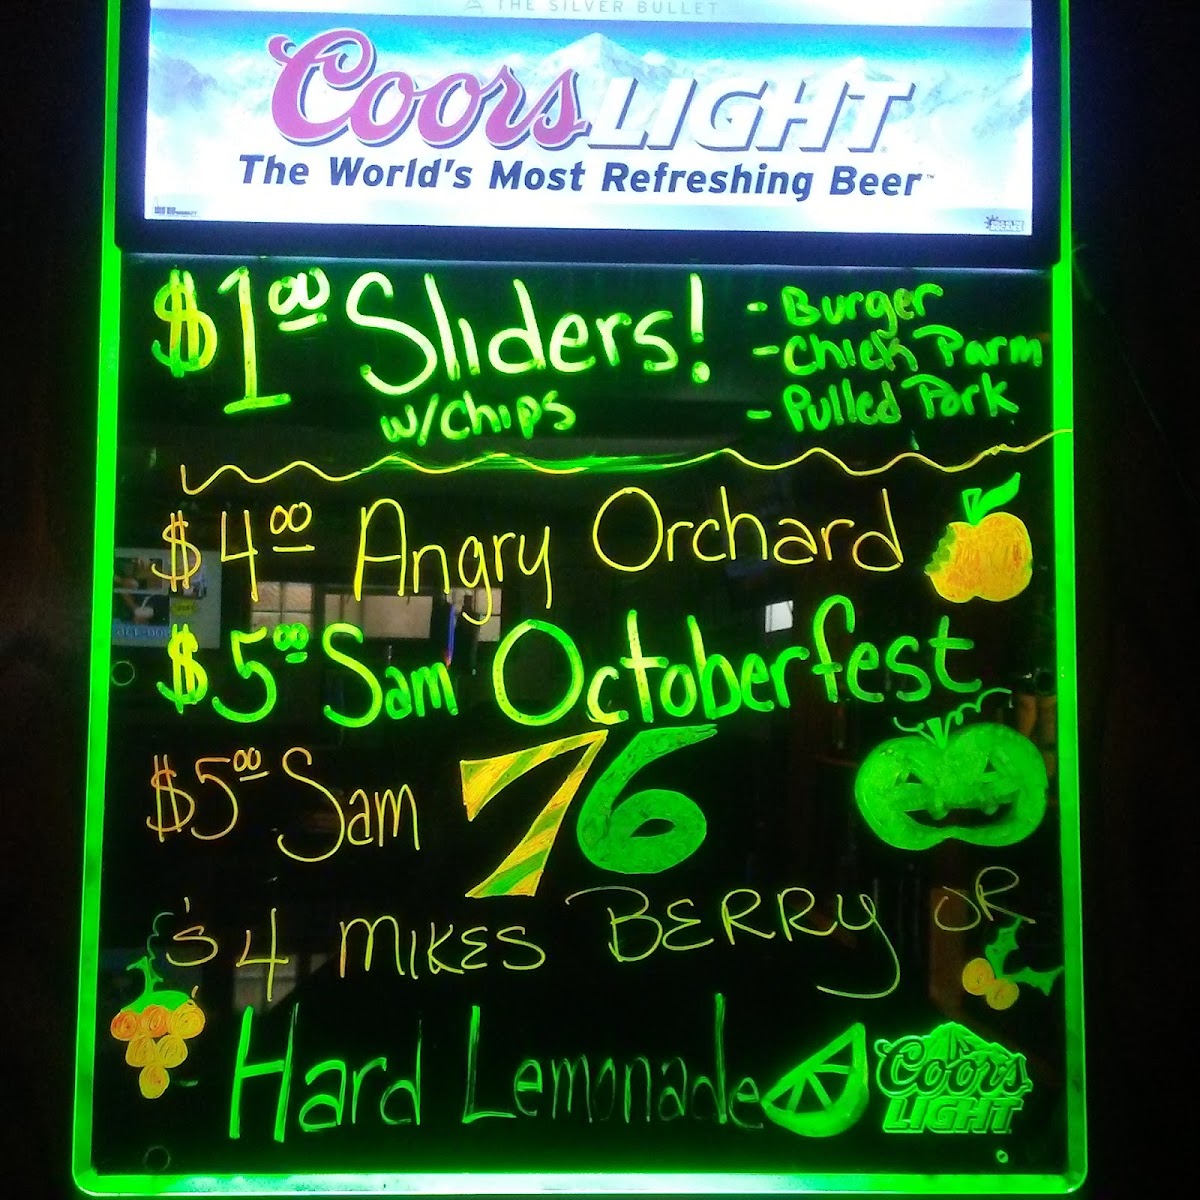 THE SILVER BULLET
Coors LIGHT
The World's Most Refreshing Beer™
$1.00 Sliders!
w/chips
- Burger
- Chick Parm
- Pulled Pork
$4.00 Angry Orchard
$5.00 Sam Octoberfest
$5.00 Sam 76
$4 MIKES BERRY OR
- Hard Lemonade
Coors
LIGHT